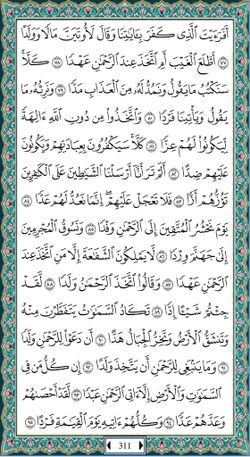 أَفَرَءَيْتَ ٱلَّذِى كَفَرَ بِـَٔايَٰتِنَا وَقَالَ لَأُوتَيَنَّ مَالًا وَوَلَدًا
٧٧ أَطَّلَعَ ٱلْغَيْبَ أَمِ ٱتَّخَذَ عِندَ ٱلرَّحْمَٰنِ عَهْدًا ٧٨ كَلَّا
سَنَكْتُبُ مَا يَقُولُ وَنَمُدُّ لَهُۥ مِنَ ٱلْعَذَابِ مَدًّا ٧٩ وَنَرِثُهُۥ مَا
يَقُولُ وَيَأْتِينَا فَرْدًا ٨٠ وَٱتَّخَذُوا۟ مِن دُونِ ٱللَّهِ ءَالِهَةً
لِّيَكُونُوا۟ لَهُمْ عِزًّا ٨١ كَلَّا سَيَكْفُرُونَ بِعِبَادَتِهِمْ وَيَكُونُونَ
عَلَيْهِمْ ضِدًّا ٨٢ أَلَمْ تَرَ أَنَّآ أَرْسَلْنَا ٱلشَّيَٰطِينَ عَلَى ٱلْكَٰفِرِينَ
تَؤُزُّهُمْ أَزًّا ٨٣ فَلَا تَعْجَلْ عَلَيْهِمْ إِنَّمَا نَعُدُّ لَهُمْ عَدًّا ٨٤
يَوْمَ نَحْشُرُ ٱلْمُتَّقِينَ إِلَى ٱلرَّحْمَٰنِ وَفْدًا ٨٥ وَنَسُوقُ ٱلْمُجْرِمِينَ
إِلَىٰ جَهَنَّمَ وِرْدًا ٨٦ لَّا يَمْلِكُونَ ٱلشَّفَٰعَةَ إِلَّا مَنِ ٱتَّخَذَ عِندَ
ٱلرَّحْمَٰنِ عَهْدًا ٨٧ وَقَالُوا۟ ٱتَّخَذَ ٱلرَّحْمَٰنُ وَلَدًا ٨٨ لَّقَدْ
جِئْتُمْ شَيْـًٔا إِدًّا ٨٩ تَكَادُ ٱلسَّمَٰوَٰتُ يَتَفَطَّرْنَ مِنْهُ
وَتَنشَقُّ ٱلْأَرْضُ وَتَخِرُّ ٱلْجِبَالُ هَدًّا ٩٠ أَن دَعَوْا۟ لِلرَّحْمَٰنِ وَلَدًا
٩١ وَمَا يَنۢبَغِى لِلرَّحْمَٰنِ أَن يَتَّخِذَ وَلَدًا ٩٢ إِن كُلُّ مَن فِى
ٱلسَّمَٰوَٰتِ وَٱلْأَرْضِ إِلَّآ ءَاتِى ٱلرَّحْمَٰنِ عَبْدًا ٩٣ لَّقَدْ أَحْصَىٰهُمْ
وَعَدَّهُمْ عَدًّا ٩٤ وَكُلُّهُمْ ءَاتِيهِ يَوْمَ ٱلْقِيَٰمَةِ فَرْدًا ٩٥
311